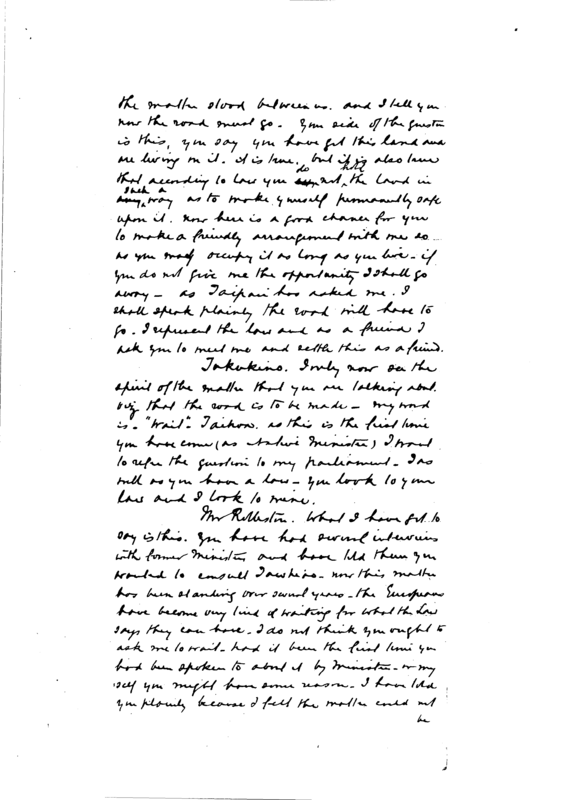 the matter stood between us. and I tell you
now the road must go. Your side of the question
is this, you say you have got this land and
are living on it. it is true, but it is also true
that according to law you do not hold the land in
such a way as to make yourself permanently safe
upon it. now here is a good chance for you
to make a friendly arrangement with me so
as you may occupy it as long as you live - if
you do not give me the opportunity I shall go
away - as Taipari has asked me. I
shall speak plainly the road will have to
go. I represent the law and as a friend I
ask you to meet me and settle this as a friend.
Tukukino. I only now see the
spirit of the matter that you are talking about.
viz that the road is to be made - my word
is - "Wait" - Taihoa. as this is the first time
you have come (as Native Minister) I want
to refer the question to my parliament - I as
well as you have a law - you look to your
law and I look to mine.
Mr Rolleston. What I have got to
say is this. You have had several interviews
with former Ministers and have told them you
wanted to consult Tawhiao - now this matter
has been standing over several years - the Europeans
have become very tired of waiting for what the Law
says they can have. I do not think you ought to
ask me to wait - had it been the first time you
had been spoken to about it by Ministers - or my
self you might have some reason - I have told
you plainly because I felt the matter could not
be